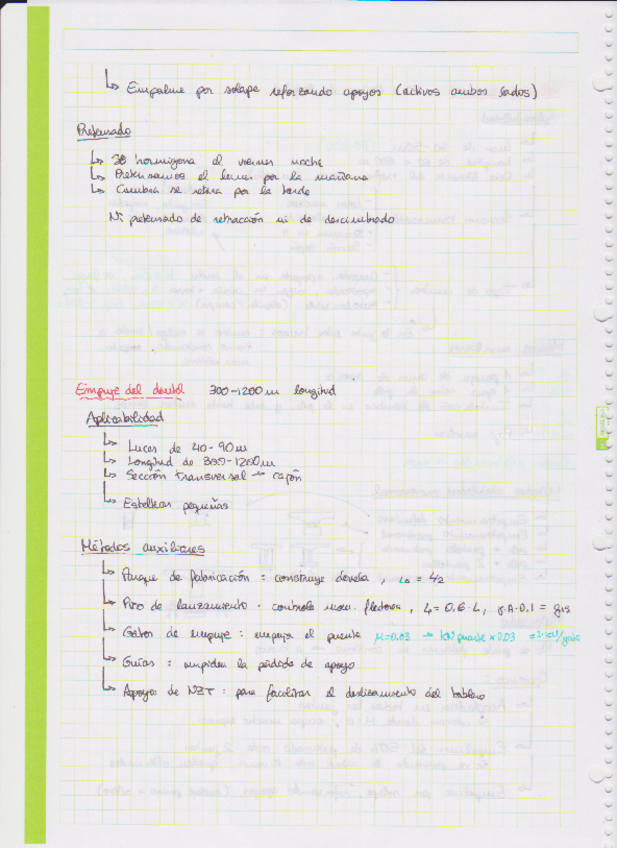 ↳ Empalme por solape reforzando apoyos (activos ambos lados)
Pretensado
↳ Se hormigona el viernes noche
↳ Pretensamos el lunes por la mañana
↳ Cimbra se retira por la tarde
Ni pretensado de retracción ni de descimbrado
Empuje del dintel 300-1200m longitud
Aplicabilidad
↳ Luces de 40-90m
↳ Longitud de 300-1200m
↳ Sección transversal → cajón
↳ Esbelteces pequeñas
Métodos auxiliares
↳ Parque de fabricación : construye dovela ,
↳ Pico de lanzamiento : controla mom. flectores , L = 0.6·L , q.A.0.1 =
↳ Gatos de empuje : empuja el puente μ=0.03 → kN puente × 0.03
↳ Guías : impiden la pérdida de apoyo
↳ Apoyos de NZT : para facilitar el deslizamiento del tablero